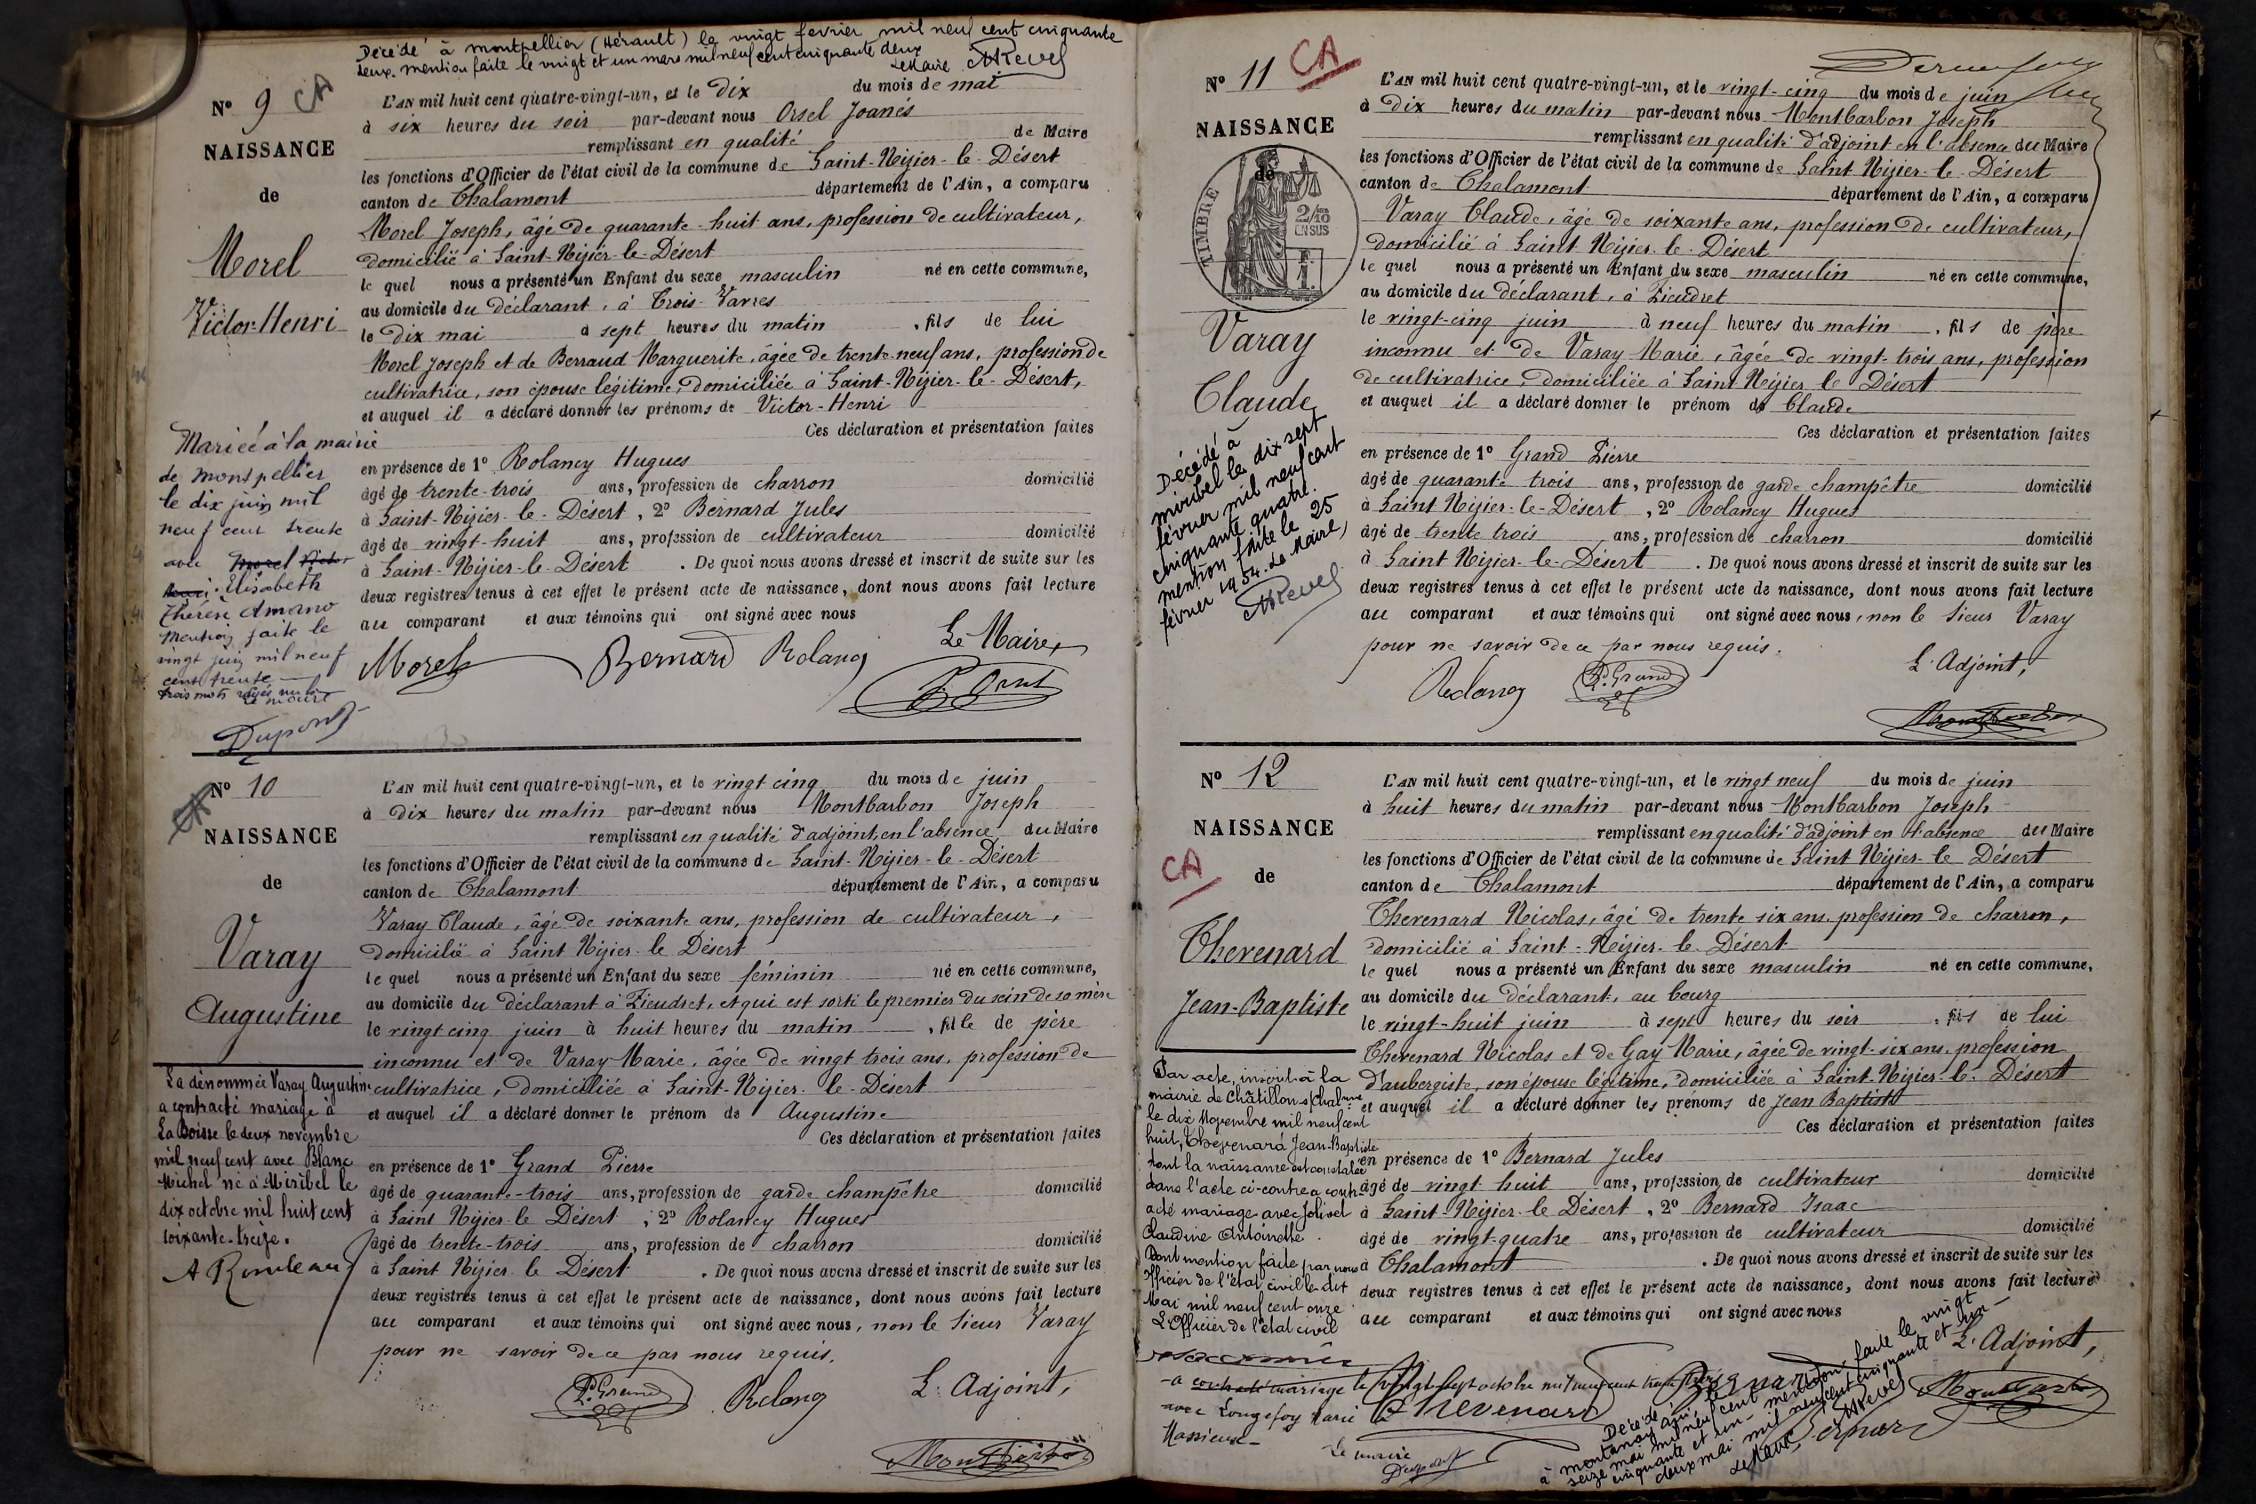 Décédé à Montpellier (Hérault) le vingt fevrier mil neuf cent cinquante
deux. mention faite le vingt et un mars mil neuf cent cinquante deux
Le Maire
N° 9 CA
NAISSANCE
de
Morel
Victor-Henri
L'AN mil huit cent quatre-vingt-un, et le dix du mois de mai
à six heures du soir par-devant nous Orsel Joanés
remplissant en qualité de Maire
les fonctions d'Officier de l'état civil de la commune de Saint-Nizier-le-Désert
canton de Chalamont département de l'Ain, a comparu
Morel Joseph, âgé de quarante-huit ans, profession de cultivateur,
domicilié à Saint-Nizier-le-Désert
le quel nous a présenté un Enfant du sexe masculin né en cette commune,
au domicile du déclarant, à Trois-Varres
le dix mai à sept heures du matin, fils de lui
Morel Joseph et de Berraud Marguerite, âgée de trente-neuf ans, profession de
cultivatrice, son épouse légitime, domiciliée à Saint-Nizier-le-Désert,
et auquel il a déclaré donner les prénoms de Victor-Henri
Ces déclaration et présentation faites
en présence de 1° Rolancy Hugues
âgé de trente-trois ans, profession de charron domicilié
à Saint-Nizier-le-Désert, 2° Bernard Jules
âgé de vingt-huit ans, profession de cultivateur domicilié
à Saint-Nizier-le-Désert. De quoi nous avons dressé et inscrit de suite sur les
deux registres tenus à cet effet le présent acte de naissance, dont nous avons fait lecture
au comparant et aux témoins qui ont signé avec nous
Le Maire,
Morel Bernard Rolancy
Mariée à la mairie
de Montpellier
le dix juin mil
neuf cent trente
avec Morel Victor
Henri Elisabeth
Thérèse Amaro
Mention faite le
vingt juin mil neuf
cent trente
trois mots rayés nuls
Le maire
Dupont
N° 10
CA
NAISSANCE
de
Varay
Augustine
L'AN mil huit cent quatre-vingt-un, et le vingt cinq du mois de juin
à dix heures du matin par-devant nous Montbarbon Joseph
remplissant en qualité d'adjoint, en l'absence du Maire
les fonctions d'Officier de l'état civil de la commune de Saint-Nizier-le-Désert
canton de Chalamont département de l'Ain, a comparu
Varay Claude, âgé de soixante ans, profession de cultivateur,
domicilié à Saint Nizier-le Désert
le quel nous a présenté un Enfant du sexe féminin né en cette commune,
au domicile du déclarant à Lieudret, et qui est sorti le premier du sein de sa mère
le vingt cinq juin à huit heures du matin, fille de père
inconnu et de Varay Marie, âgée de vingt trois ans, profession de
cultivatrice, domiciliée à Saint-Nizier-le-Désert
et auquel il a déclaré donner le prénom de Augustine
Ces déclaration et présentation faites
en présence de 1° Grand Pierre
âgé de quarante-trois ans, profession de garde champêtre domicilié
à Saint Nizier-le Désert, 2° Rolancy Hugues
âgé de trente-trois ans, profession de charron domicilié
à Saint Nizier-le Désert. De quoi nous avons dressé et inscrit de suite sur les
deux registres tenus à cet effet le présent acte de naissance, dont nous avons fait lecture
au comparant et aux témoins qui ont signé avec nous, non le Sieur Varay
pour ne savoir de ce par nous requis.
P. Grand Rolancy L'Adjoint,
Montbarbon
La dénommée Varay Augustine
a contracté mariage à
La Boisse le deux novembre
mil neuf cent avec Blanc
Michel né à Miribel le
dix octobre mil huit cent
soixante-treize.
N° 11 CA
NAISSANCE
de
TIMBRE
2/10
EN SUS
Varay
Claude
L'AN mil huit cent quatre-vingt-un, et le vingt-cinq du mois de juin
à dix heures du matin par-devant nous Montbarbon Joseph
remplissant en qualité d'adjoint en l'absence du Maire
les fonctions d'Officier de l'état civil de la commune de Saint Nizier-le-Désert
canton de Chalamont département de l'Ain, a comparu
Varay Claude, âgé de soixante ans, profession de cultivateur,
domicilié à Saint-Nizier-le-Désert
le quel nous a présenté un Enfant du sexe masculin né en cette commune,
au domicile du déclarant, à Lieudret
le vingt-cinq juin à neuf heures du matin, fils de père
inconnu et de Varay Marie, âgée de vingt-trois ans, profession
de cultivatrice, domiciliée à Saint Nizier le Désert
et auquel il a déclaré donner le prénom de Claude
Ces déclaration et présentation faites
en présence de 1° Grand Pierre
âgé de quarante trois ans, profession de garde champêtre domicilié
à Saint Nizier-le-Désert, 2° Rolancy Hugues
âgé de trente trois ans, profession de charron domicilié
à Saint Nizier-le-Désert. De quoi nous avons dressé et inscrit de suite sur les
deux registres tenus à cet effet le présent acte de naissance, dont nous avons fait lecture
au comparant et aux témoins qui ont signé avec nous, non le Sieur Varay
pour ne savoir de ce par nous requis.
Rolancy P. Grand L'Adjoint,
Montbarbon
Décédé à
Miribel le dix sept
février mil neuf cent
cinquante quatre.
mention faite le 25
février 1954. Le Maire,
N° 12
NAISSANCE
CA
de
Thevenard
Jean-Baptiste
L'AN mil huit cent quatre-vingt-un, et le vingt neuf du mois de juin
à huit heures du matin par-devant nous Montbarbon Joseph
remplissant en qualité d'adjoint en l'absence du Maire
les fonctions d'Officier de l'état civil de la commune de Saint Nizier-le Désert
canton de Chalamont département de l'Ain, a comparu
Thevenard Nicolas, âgé de trente six ans, profession de charron,
domicilié à Saint-Nizier-le-Désert
le quel nous a présenté un Enfant du sexe masculin né en cette commune,
au domicile du déclarant, au bourg
le vingt-huit juin à sept heures du soir, fils de lui
Thevenard Nicolas et de Gay Marie, âgée de vingt-six ans, profession
d'aubergiste, son épouse légitime, domiciliée à Saint-Nizier-le-Désert
et auquel il a déclaré donner les prénoms de Jean Baptiste
Ces déclaration et présentation faites
en présence de 1° Bernard Jules
âgé de vingt huit ans, profession de cultivateur domicilié
à Saint-Nizier-le Désert, 2° Bernard Isaac
âgé de vingt-quatre ans, profession de cultivateur domicilié
à Chalamont. De quoi nous avons dressé et inscrit de suite sur les
deux registres tenus à cet effet le présent acte de naissance, dont nous avons fait lecture
au comparant et aux témoins qui ont signé avec nous
L'Adjoint,
Thevenard Bernard Montbarbon
Par acte, inscrit à la
mairie de Châtillon s/Chalne
le dix Novembre mil neuf cent
huit, Thevenard Jean-Baptiste
dont la naissance est constatée
dans l'acte ci-contre a contr-
acté mariage avec Jolivet
Claudine Antoinette.
Dont mention faite par nous
Officier de l'état civil le dit
Mai mil neuf cent onze
L'Officier de l'état civil
a contracté mariage le vingt sept octobre mil neuf cent
avec Longefoy Marie
Massieux
Le maire
Dupont
Décédé
à Montanay
seize mai mil neuf cent
cinquante et un - mention faite le vingt
deux mai mil neuf cent cinquante et un
Le Maire,